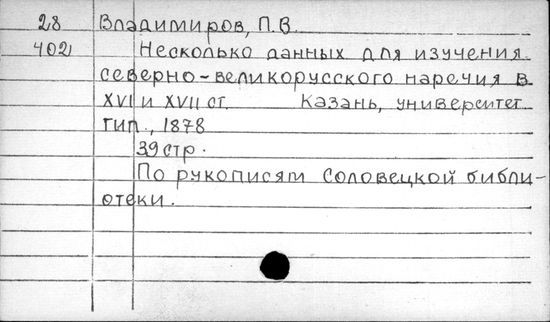 28 Владимиров, П.В.
402 Несколько данных для изучения
северно-великорусского наречия в
XVI и XVII ст. Казань, университет.
тип., 1878
39 стр.
По рукописям Соловецкой библи-
отеки.